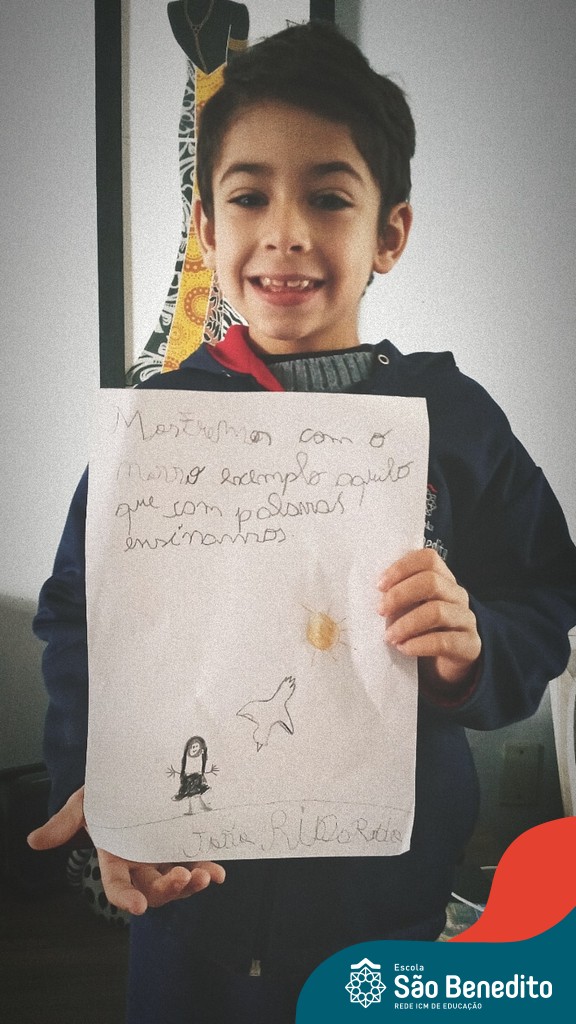 Mostremos com o
nosso exemplo aquilo
que com palavras
ensinamos.
Escola
São Benedito
REDE ICM DE EDUCAÇÃO